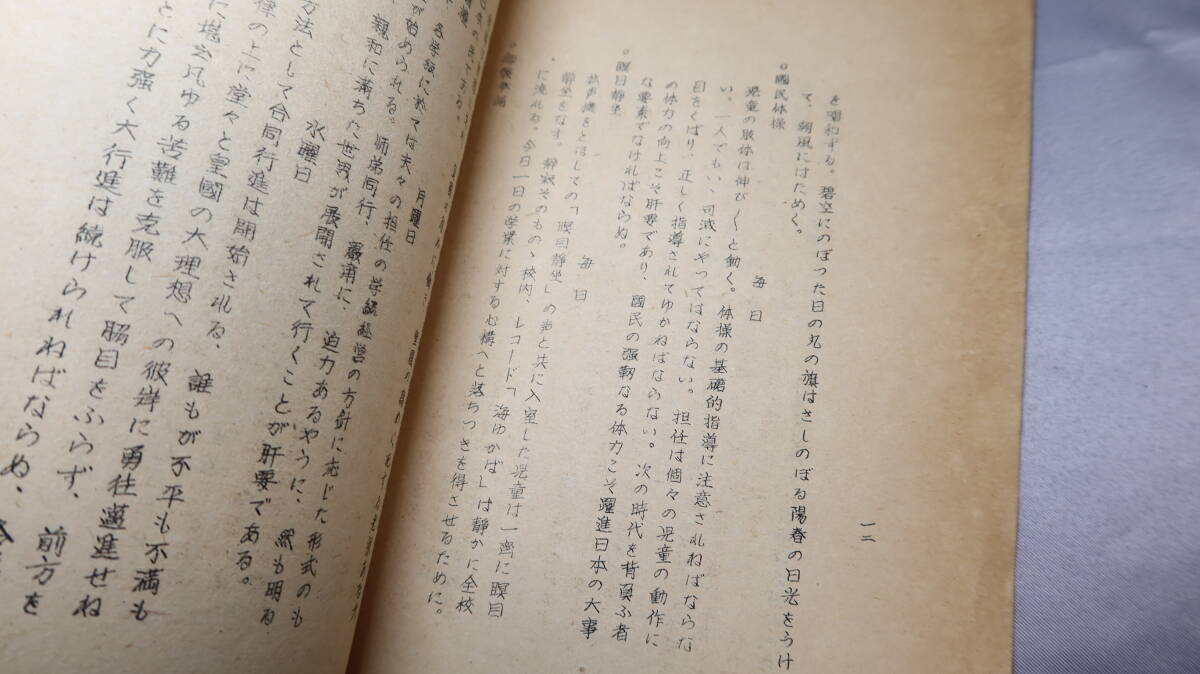 一二
を唱和する。碧空にのぼった日の丸の旗はさしのぼる陽春の日光をうけ
て、朝風にはためく。
○國民体操 毎日
児童の肢体は伸び〱と働く。体操の基礎的指導に注意されねばならな
い。一人でもいゝ可減にやってはならない。担任は個々の児童の動作に
目をくばり、正しく指導されてゆかねばならない。次の時代を背負ふ者
の体力の向上こそ肝要であり、國民の強靭なる体力こそ躍進日本の大事
な要素でなければならぬ。
○瞑目静坐 毎日
拡声機をとほしての「瞑目静坐」の声と共に入室した児童は一齊に瞑目
静坐をなす。静寂そのものゝ校内、レコード「海ゆかば」は静かに全校
に流れる。今日一日の学業に対する心構へと落ちつきを得させるために。
月曜日
各学級に於ては夫々の担任の学級経営の方針に応じた形式のも
が始められる。師弟同行、厳粛に、迫力あるやうに、然も明る
親和に満ちた世界が展開されて行くことが肝要である。
水曜日
方法として合同行進は開始される、
律の上に堂々と皇國の大理想への彼岸に勇往邁進せね
に堪え凡ゆる苦難を克服して脇目をふらず、前方を
とに力強く大行進は続けられねばならぬ、
誰もが不平も不満も